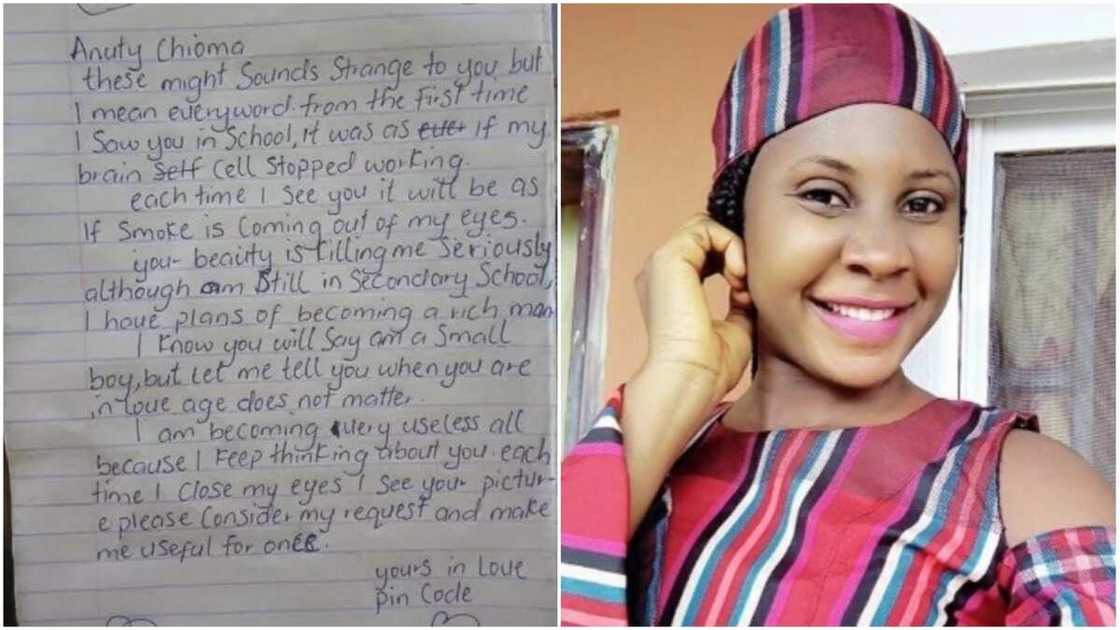 Anuty Chioma
these might Sounds Strange to you but
I mean everyword. from the First time
I Saw you in School, it was as ever if my
brain self Cell Stopped working.
each time I see you it will be as
If Smoke is Coming out of my eyes.
your beauity is killing me seriously
although am Still in Secondary School,
I have plans of becoming a rich man
I Know you will Say am a Small
boy, but Let me tell you when you are
in love age does not matter.
I am becoming very useless all
because I Keep thinking about you. each
time I Close my eyes I see your pictur-
e please Consider my request and make
me useful for once.
yours in Love
Pin Code